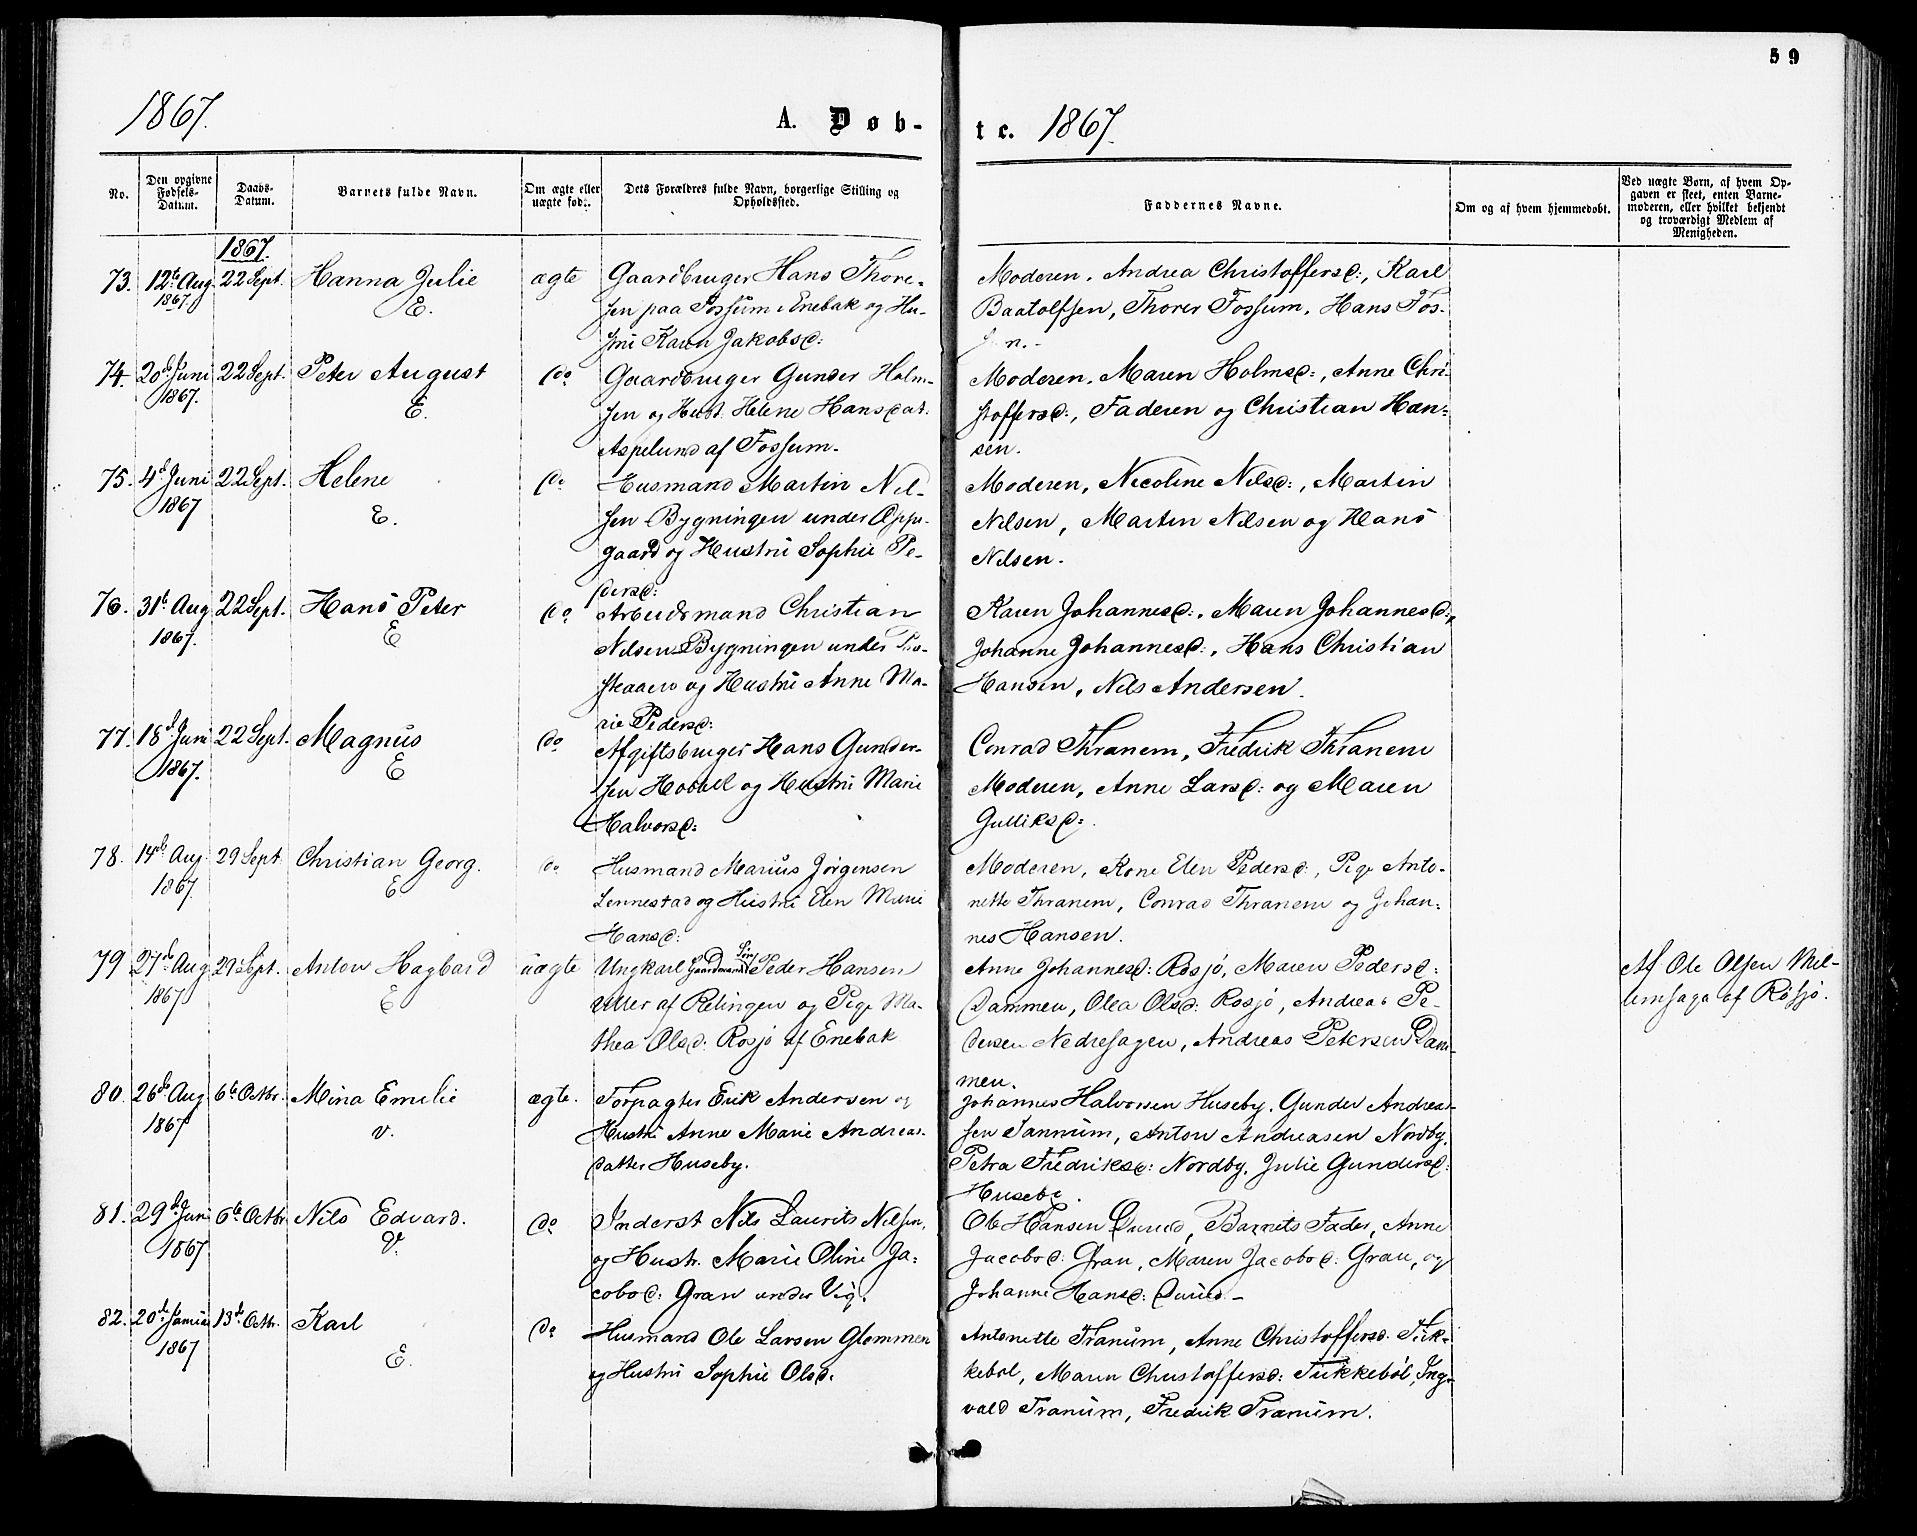 59
1867.
A. Døb-
te. 1867.
No.
Den opgivne Fødsels-Datum.
Daabs-Datum.
Barnets fulde Navn.
Om ægte eller uægte fød.
Dets Forældres fulde Navn, borgerlige Stilling og Opholdssted.
Faddernes Navne.
Om og af hvem hjemmedøbt.
Ved uægte Børn, af hvem Opgaven er skeet, enten Barnemoderen, eller hvilket bekjendt og troværdigt Medlem af Menigheden.
1867.
73. 12te Aug. 1867. 22 Sept. Hanna Julie E. ægte
Gaardbruger Hans Thore-
sen paa Fossum i Enebak og Hu-
stru Karen Jakobsd:
Moderen, Andrea Christoffersd:, Karl
Baatolfsen, Thorer Fossum, Hans Fos-
74. 20de Juni 1867. 22 Sept. Peter August E. do
Gaardbruger Gunder Holm-
sen og Hust. Helene Hansdat.
Aspelund af Fossum.
Moderen, Maren Holmsd:, Anne Chri-
stoffersd:, Faderen og Christian Han-
sen.
75. 4de Juni 1867 22 Sept. Helene E. do
Husmand Martin Nil-
sen Bygningen under Opp-
gaard og Hustru Sophie Pe-
dersd:
Moderen, Nicoline Nilsd:, Martin
Nilsen, Martin Nilsen og Hans
Nilsen.
76. 31te Aug 1867. 22 Sept. Hans Peter E do
Arbeidsmand Christian
Nilsen Bygningen under
og Hustru Anne Ma-
rie Pedersd:
Karen Johannesd:, Maren Johannesd:,
Johanne Johannesd:, Hans Christian
Hansen, Nils Andersen.
77. 18de Juni 1867. 22 Sept. Magnus E do
Afgiftsbruger Hans Gunder-
sen Hobbel og Hustru Marie
Halvorsd:
Conrad Thranem, Fredrik Thranem
Moderen, Anne Larsd: og Maren
Gulliksd:.
78. 14de Aug 1867. 29 Sept Christian Georg. E. do
Husmand Marius Jørgensen
Lennestad og Hustru Elen Marie
Hansd:
Moderen, Kone Elen Pedersd:, Pige Anto-
nette Thranem, Conrad Thranem og Johan-
nes Hansen.
79 27de Aug 1867 29 Sept. Anton Hagbard E uægte
Ungkarl Gaardmands Søn Peder Hansen
af Relingen og Pige Ma-
thea Olsd: Rosjø af Enebak
Anne Johannesd: Rosjø, Maren Pedersd:
Dammen, Olea Olsd: Rosjø, Andreas Pe-
dersen Nedresagen, Andreas Petersen Dam-
men.
Af Ole Olsen Mel-
lemsaga af Røssjø.
80. 26de Aug 1867 6te Octbr. Mina Emilie v. ægte.
Forpagter Erik Andersen og
Hustru Anne Marie Andreas-
datter Huseby.
Johannes Halvorsen Huseby. Gunder Andrea-
sen Tannum, Anton Andreasen Nordby,
Petra Fredriksd: Nordby, Julie Gundersd:
Huseby.
81. 29de Juni 1867 6te Octbr Nils Edvard. V. do
Inderst Nils Laurits Nilsen,
og Hustr. Marie Oline Ja-
cobsd: Gran under Vig.
Ole Hansen Durud, Barnets Fader, Anne
Jacobsd: Gran, Maren Jacobsd: Gran, og
Johanne Hansd: Durud.
82. 20de 1867 13de Octbr. Karl E. do
Husmand Ole Larsen Glommen
og Hustru Sophie Olsd.
Antonette Tranum, Anne Christoffersd. Tik-
kebøl, Maren Christoffersd: Tikkebøl, Ing-
vald Tranum, Fredrik Tranum.